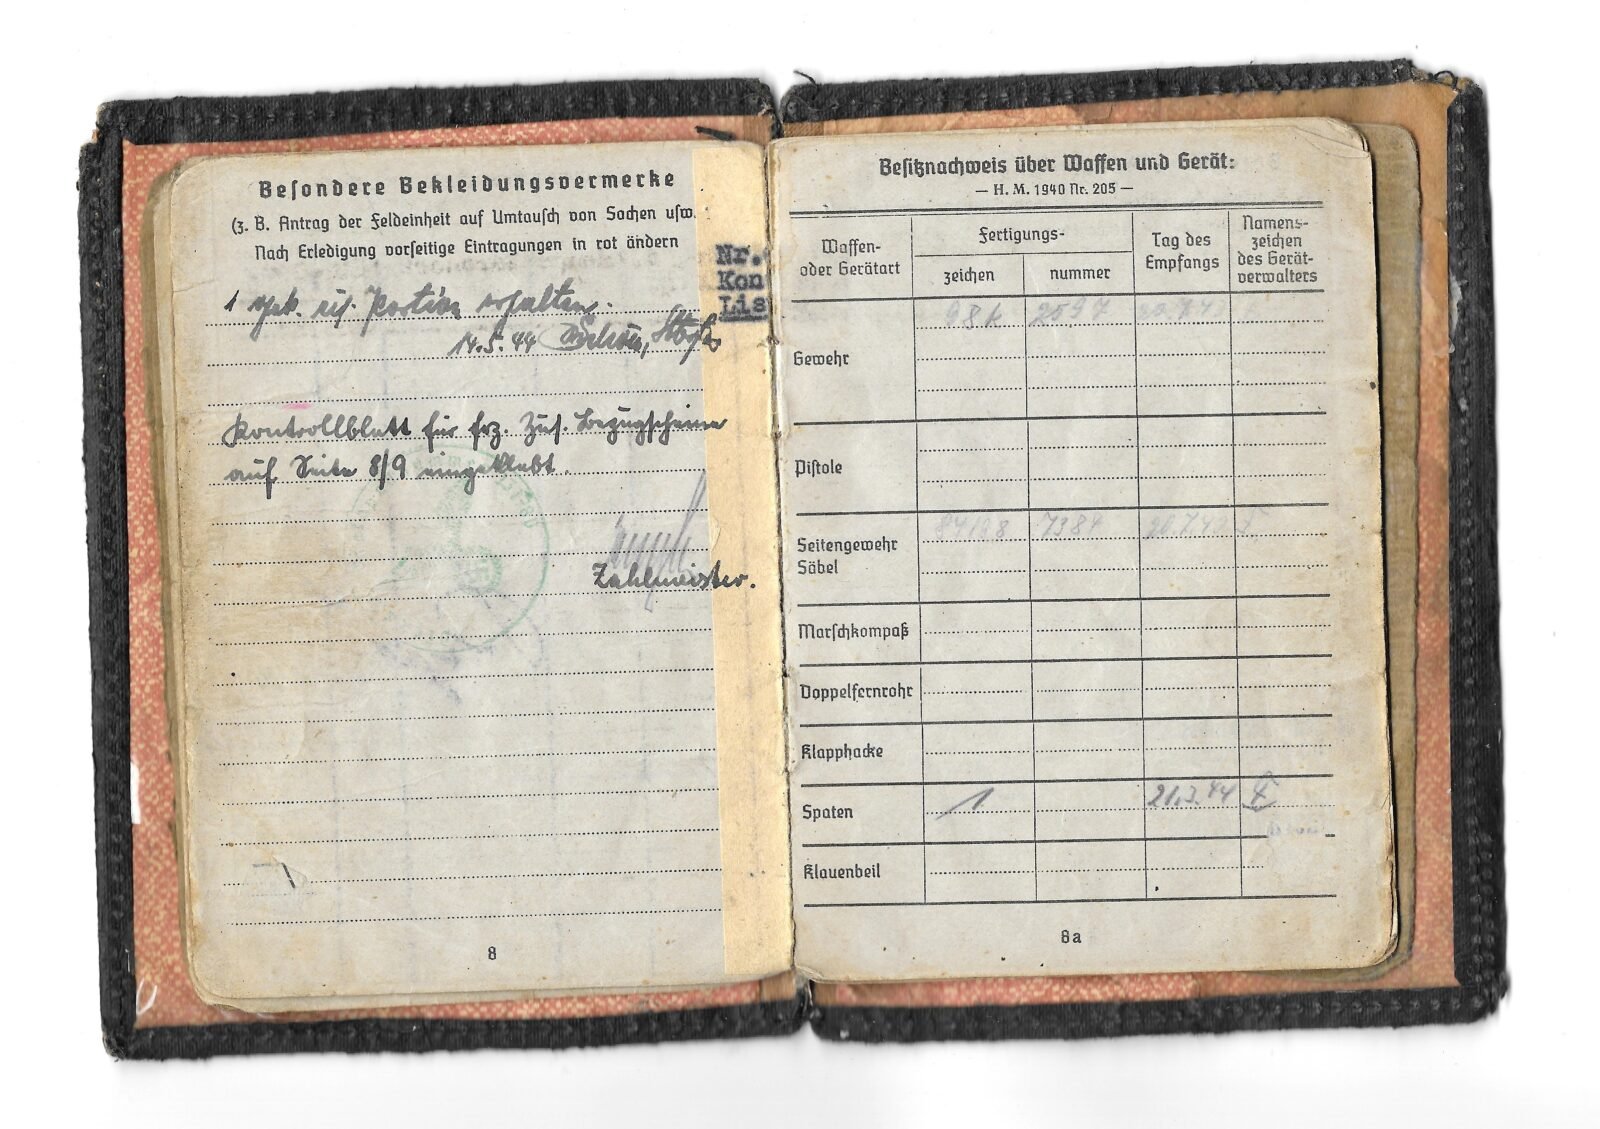 Besondere Bekleidungsvermerke
(z. B. Antrag der Feldeinheit auf Umtausch von Sachen usw.
Nach Erledigung vorseitige Eintragungen in rot ändern
1 Portion erhalten.
14.5.44
Kontrollblatt für frz. Zus. Bezugscheine
auf Seite 8/9 eingeklebt.
Zahlmeister.
8
Nr.
Kon
Lis
Besitznachweis über Waffen und Gerät:
— H. M. 1940 Nr. 205 —
Waffen- oder Gerätart
Fertigungs-
zeichen
nummer
Tag des Empfangs
Namens- zeichen des Gerät- verwalters
Gewehr 98k
Pistole
Seitengewehr 7384
Säbel
Marschkompaß
Doppelfernrohr
Klapphacke
Spaten 1 21.3.44
Klauenbeil
8a